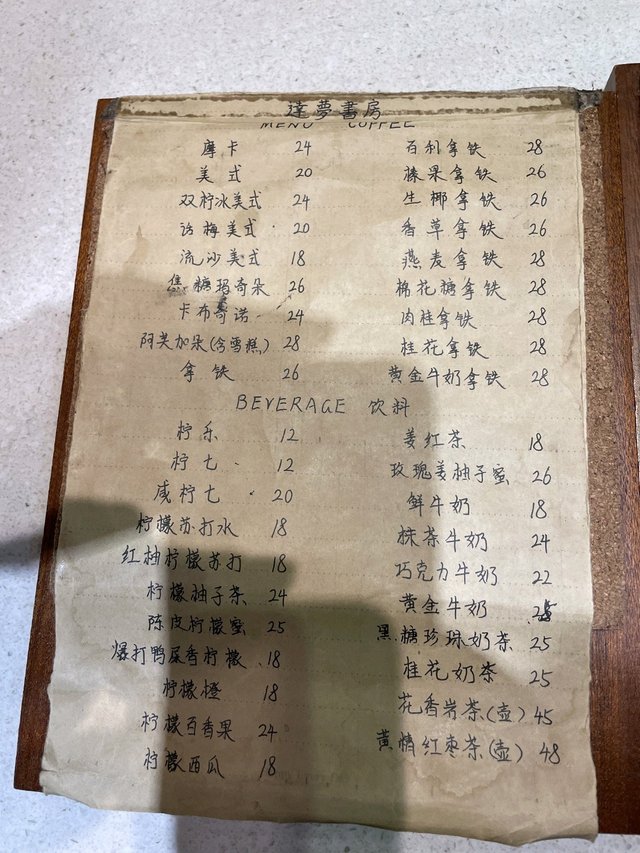 達夢書房
MENU COFFEE
摩卡 24 百利拿铁 28
美式 20 榛果拿铁 26
双柠冰美式 24 生椰拿铁 26
话梅美式 20 香草拿铁 26
流沙美式 18 燕麦拿铁 28
焦糖玛奇朵 26 棉花糖拿铁 28
卡布奇诺 24 肉桂拿铁 28
阿芙加朵(含雪糕) 28 桂花拿铁 28
拿铁 26 黄金牛奶拿铁 28
BEVERAGE 饮料
柠乐 12 姜红茶 18
柠七 12 玫瑰姜柚子蜜 26
咸柠七 20 鲜牛奶 18
柠檬苏打水 18 抹茶牛奶 24
红柚柠檬苏打 18 巧克力牛奶 22
柠檬柚子茶 24 黄金牛奶 25
陈皮柠檬蜜 25 黑糖珍珠奶茶 25
爆打鸭屎香柠檬 18 桂花奶茶 25
柠檬橙 18 花香岩茶(壶) 45
柠檬百香果 24 黄精红枣茶(壶) 48
柠檬西瓜 18